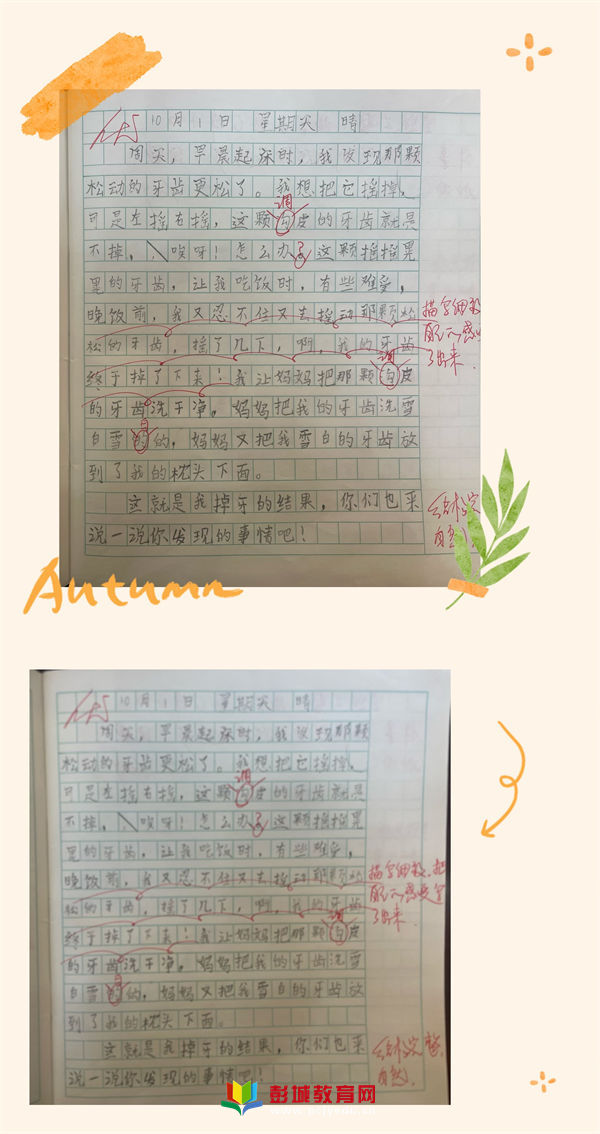 10月1日 星期天 晴
周天,早晨起床时,我发现那颗
松动的牙齿更松了。我想把它摇掉,
调
可是左摇右摇,这颗勾皮的牙齿就是
不掉,唉呀!怎么办?这颗摇摇晃
晃的牙齿,让我吃饭时,有些难受,
晚饭前,我又忍不住又去摇动那颗松
松的牙齿,摇了几下,啊,我的牙齿
调
终于掉了下来!我让妈妈把那颗勾皮
的牙齿洗干净。妈妈把我的牙齿洗雪
白
白雪的的,妈妈又把我雪白的牙齿放
到了我的枕头下面。
这就是我掉牙的结果,你们也来
说一说你发现的事情吧!
描写细致
了出来
自然
Autumn
10月1日 星期天 晴
周天,早晨起床时,我发现那颗
松动的牙齿更松了。我想把它摇掉,
调
可是左摇右摇,这颗勾皮的牙齿就是
不掉,唉呀!怎么办?这颗摇摇晃
晃的牙齿,让我吃饭时,有些难受,
晚饭前,我又忍不住又去摇动那颗松
松的牙齿,摇了几下,啊,我的牙齿
调
终于掉了下来!我让妈妈把那颗勾皮
的牙齿洗干净。妈妈把我的牙齿洗雪
白
白雪的的,妈妈又把我雪白的牙齿放
到了我的枕头下面。
这就是我掉牙的结果,你们也来
说一说你发现的事情吧!
描写细致,把
感受写
了出来
结构完整,
自然
彭城教育网
www.pcjyedu.cn